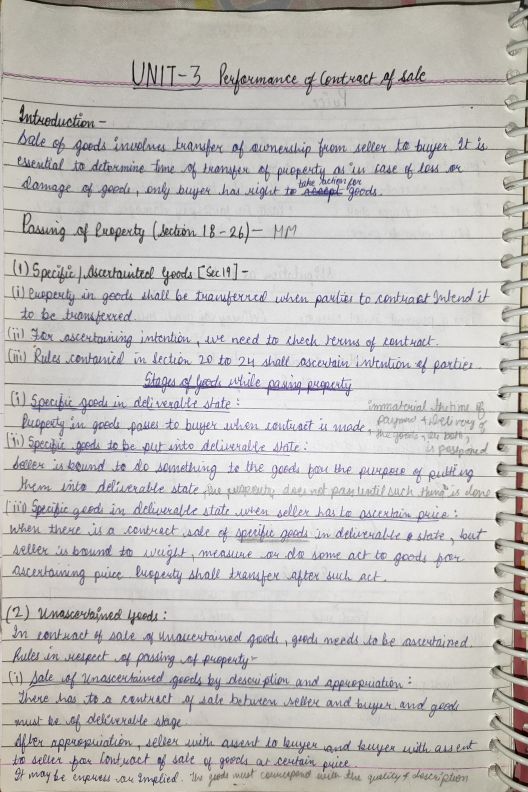 UNIT-3 Performance of Contract of sale
Introduction -
Sale of goods involves transfer of ownership from seller to buyer. It is
essential to determine time of transfer of property as in case of loss or
damage of goods, only buyer has right to take action for goods.
Passing of Property (Section 18-26) - MM
(1) Specific/Ascertainted Goods [Sec19] -
(i) Property in goods shall be transferred when parties to contract Intend it
to be transferred.
(ii) For ascertaining intention, we need to check terms of contract.
(iii) Rules contanied in Section 20 to 24 shall ascertain intention of parties.
Stages of Goods while passing property
(i) Specific goods in deliverable state:
Property in goods passes to buyer when contract is made, immaterial the time of
payment & delivery of
the goods, or both,
is postponed
(ii) Specific goods to be put into deliverable state:
Seller is bound to do something to the goods for the purpose of putting
them into deliverable state, the property does not pass until such thing is done
(iii) Specific goods in deliverable state when seller has to ascertain price:
When there is a contract sale of specific goods in deliverable state, but
seller is bound to weight, measure or do some act to goods for
ascertaining price Property shall transfer after such act.
(2) Unascertained Goods:
In contract of sale of unascertained goods, goods needs to be ascertained.
Rules in respect of passing of property-
(i) Sale of Unascertained goods by description and appropriation:
There has to a contract of sale between seller and buyer and goods
must be of deliverable stage.
After appropriation, seller with assent to buyer and buyer with assent
to seller for Contract of sale of goods at certain price.
It may be express or Implied. The goods must correspond with the quality & description